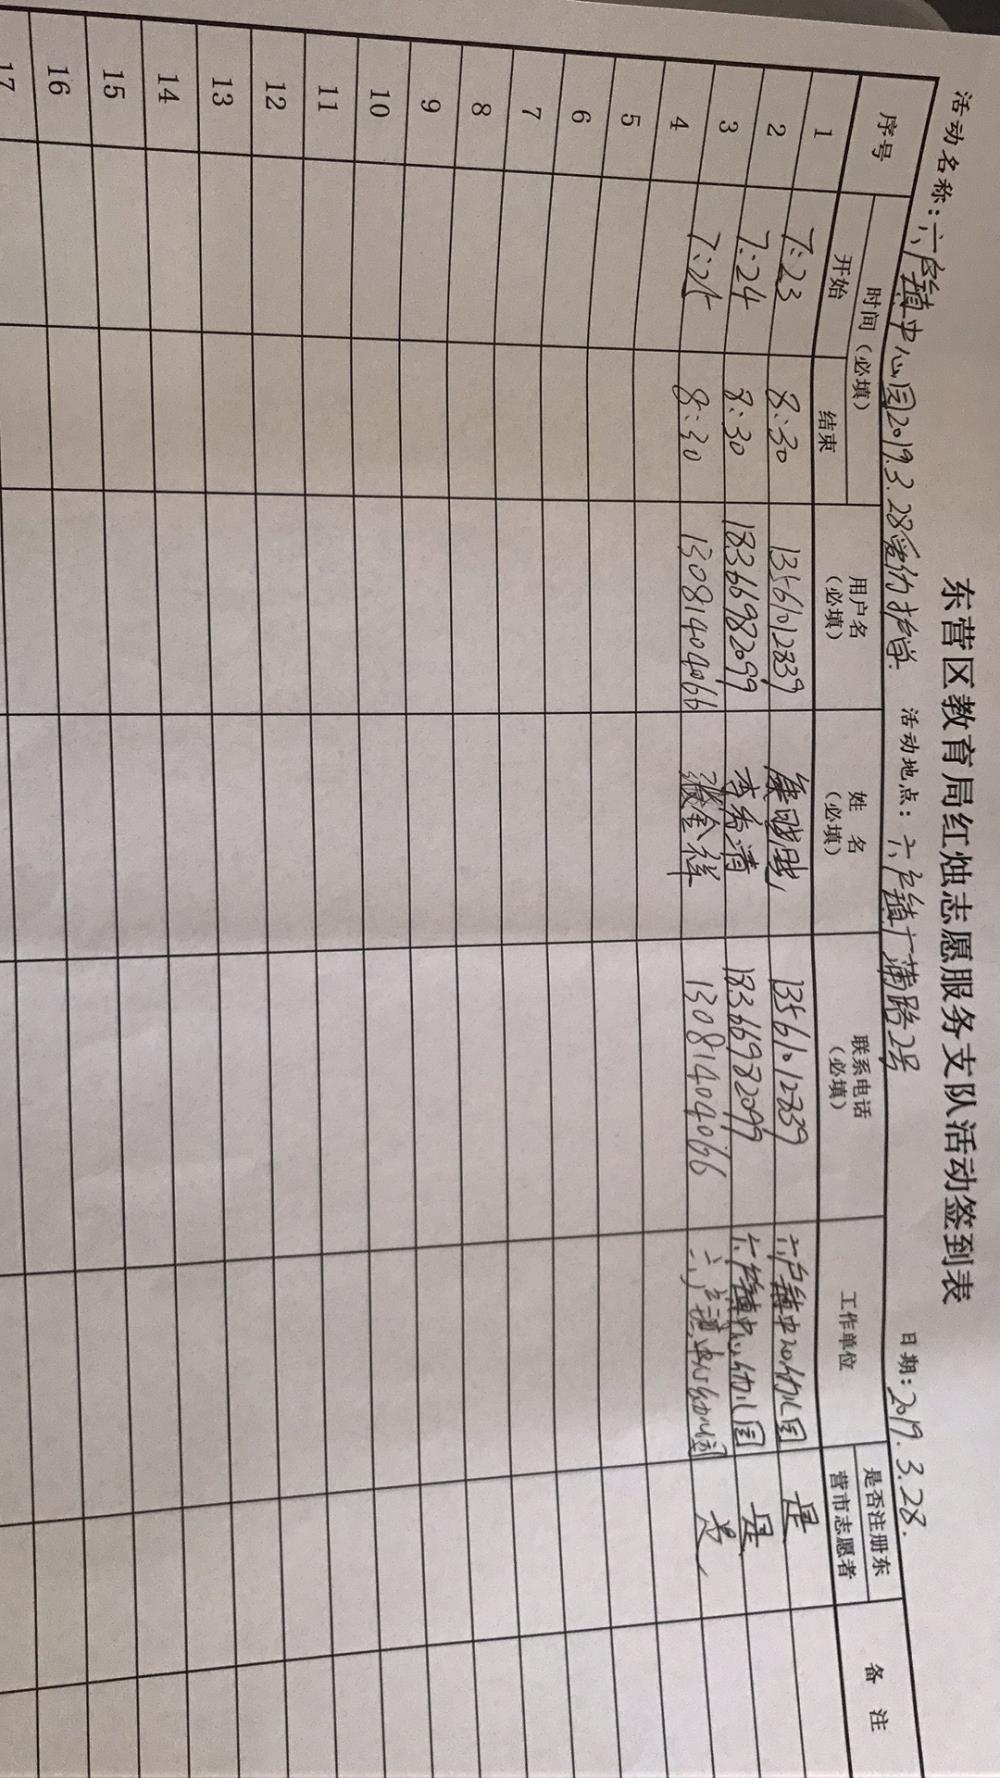 东营区教育局红烛志愿服务支队活动签到表
活动名称：六户镇中心园2019.3.28爱幼护学 活动地点：六户镇广蒲路2号 日期：2019.3.28.
序号 时间（必填） 用户名（必填） 姓 名（必填） 联系电话（必填） 工作单位 是否注册东营市志愿者 备 注
开始 结束
1 7:23 8:30 13561012839 13561012839 六户镇中心幼儿园 是
2 7:24 8:30 18366982099 李秀清 18366982099 六户镇中心幼儿园 是
3 7:25 8:30 13081404066 张金祥 13081404066 六户镇中心幼儿园 是
4
5
6
7
8
9
10
11
12
13
14
15
16
17